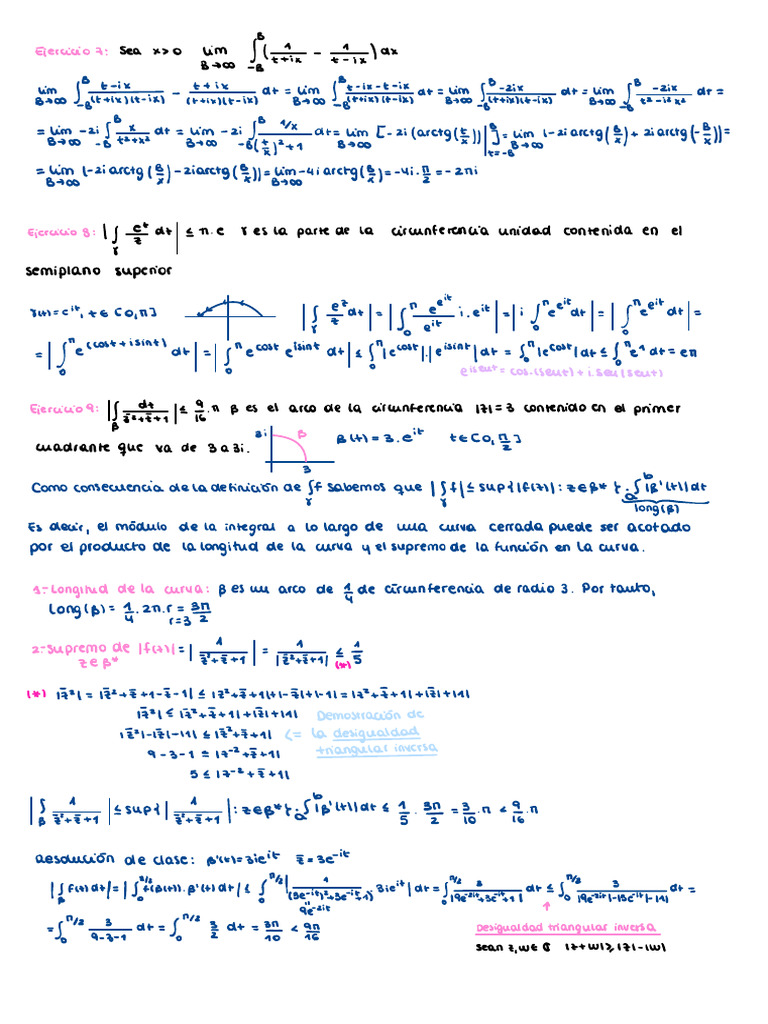 Ejercicio 7: Sea x>0 lim_{B→∞} ∫_{-B}^{B} (1/(t+ix) - 1/(t-ix)) dx
lim_{B→∞} ∫_{-B}^{B} (t-ix)/((t+ix)(t-ix)) - (t+ix)/((t+ix)(t-ix)) dt = lim_{B→∞} ∫_{-B}^{B} (t-ix-t-ix)/((t+ix)(t-ix)) dt = lim_{B→∞} ∫_{-B}^{B} -2ix/((t+ix)(t-ix)) dt = lim_{B→∞} ∫_{-B}^{B} -2ix/(t²-i²x²) dt =
= lim_{B→∞} -2i ∫_{-B}^{B} x/(t²+x²) dt = lim_{B→∞} -2i ∫_{-B}^{B} (1/x)/((t/x)²+1) dt = lim_{B→∞} [-2i(arctg(t/x))|_{t=-B}^{B}] = lim_{B→∞} (-2i arctg(B/x) + 2i arctg(-B/x)) =
= lim_{B→∞} (-2i arctg(B/x) - 2i arctg(B/x)) = lim_{B→∞} -4i arctg(B/x) = -4i · π/2 = -2πi
Ejercicio 8: |∫_γ e^t/z dt| ≤ π.e γ es la parte de la circunferencia unidad contenida en el
semiplano superior
γ(t)=e^{it}, t∈[0,π] |∫_γ e^z/z dt| = |∫_0^π e^{e^{it}}/e^{it} i.e^{it}| = |i ∫_0^π e^{e^{it}} dt| = |∫_0^π e^{e^{it}} dt| =
= |∫_0^π e^{(cost+isint)} dt| = |∫_0^π e^{cost} e^{isint} dt| ≤ ∫_0^π |e^{cost}|.|e^{isint}| dt = ∫_0^π |e^{cost}| dt ≤ ∫_0^π e^1 dt = eπ
e^{isent} = cos(sent) + i.sen(sent)
Ejercicio 9: |∫_β dt/(z̄²+z̄+1)| ≤ 9/16 .π β es el arco de la circunferencia |z|=3 contenido en el primer
cuadrante que va de 3 a 3i. 3i β 3 β(t)=3.e^{it} t∈[0,π/2]
Como consecuencia de la definición de ∫_γ f sabemos que |∫_γ f| ≤ sup{|f(z)|: z∈β*}. ∫_a^b |β'(t)| dt
long(β)
Es decir, el módulo de la integral a lo largo de una curva cerrada puede ser acotado
por el producto de la longitud de la curva y el supremo de la función en la curva.
1.-Longitud de la curva: β es un arco de 1/4 de circunferencia de radio 3. Por tanto,
long(β) = 1/4 . 2π.r = 3π/2
r=3
2.-Supremo de |f(z)| = |1/(z̄²+z̄+1)| = 1/|z̄²+z̄+1| ≤ 1/5
z∈β* (*)
(*) |z̄²| = |z̄²+z̄+1-z̄-1| ≤ |z̄²+z̄+1|+|-z̄|+|-1| = |z²+z̄+1|+|z̄|+|1|
|z̄²| ≤ |z̄²+z̄+1|+|z|+|1| Demostración de
|z̄²|-|z̄|-|1| ≤ |z̄²+z̄+1| <= la desigualdad
9-3-1 ≤ |z̄²+z̄+1| triangular inversa
5 ≤ |z̄²+z̄+1|
|∫_β 1/(z̄²+z̄+1)| ≤ sup{|1/(z̄²+z̄+1)|: z∈β*}. ∫_a^b |β'(t)| dt ≤ 1/5 . 3π/2 = 3/10 .π < 9/16 .π
Resolución de clase: β'(t)=3ie^{it} z̄=3e^{-it}
|∫_β f(t)dt| = |∫_0^{π/2} f(β(t)).β'(t) dt| ≤ ∫_0^{π/2} |1/((3e^{-it})²+3e^{-it}+1) . 3ie^{it}| dt = ∫_0^{π/2} 3/|9e^{-2it}+3e^{-it}+1| dt ≤ ∫_0^{π/2} 3/(|9e^{-2it}|-|3e^{-it}|-|1|) dt =
9e^{-2it}
= ∫_0^{π/2} 3/(9-3-1) dt = ∫_0^{π/2} 3/2 dt = 3π/10 < 9π/16
Desigualdad triangular inversa
sean z,w∈ℂ |z+w|≥|z|-|w|